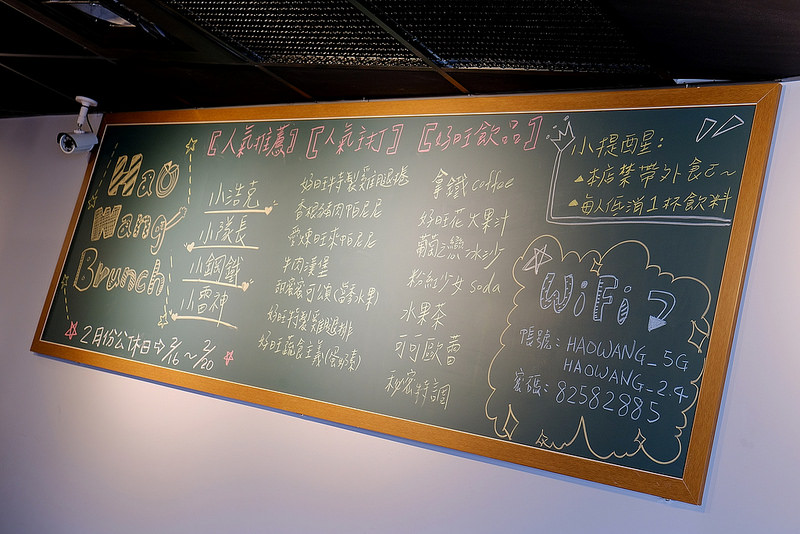 Hao
Wang
Brunch
2月份公休日→2/16～2/20
〖人氣推薦〗
小浩克
小隊長
小鋼鐵
小雷神
〖人氣主打〗
好旺特製雞腿捲
香橙豬肉帕尼尼
煙燻旺來帕尼尼
牛肉漢堡
甜蜜蜜可頌(當季水果)
好旺特製雞腿排
好旺蔬食主義(蛋奶素)
〖好旺飲品〗
拿鐵coffee
好旺花火果汁
葡之戀冰沙
粉紅少女soda
水果茶
可可歐蕾
秘密特調
小提醒:
▲本店禁帶外食ㄛ～
▲每人低消1杯飲料
WiFi
帳號: HAOWANG_5G
HAOWANG_2.4
密碼: 82582885